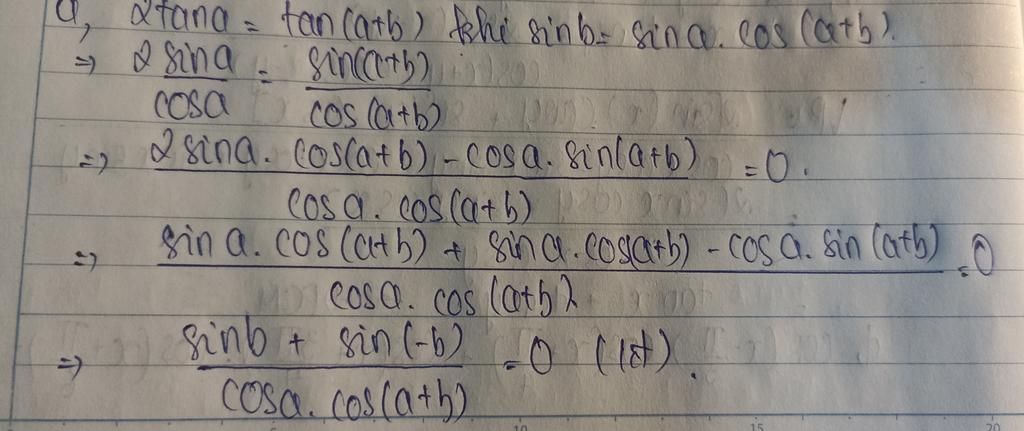 a, 2tana = tan(a+b) khi sinb = sina.cos(a+b).
=> 2 sina/cosa = sin(a+b)/cos(a+b)
=> (2sina.cos(a+b) - cosa.sin(a+b))/(cosa.cos(a+b)) = 0.
=> (sina.cos(a+b) + sina.cos(a+b) - cosa.sin(a+b))/(cosa.cos(a+b)) = 0
=> (sinb + sin(-b))/(cosa.cos(a+b)) = 0
15
20